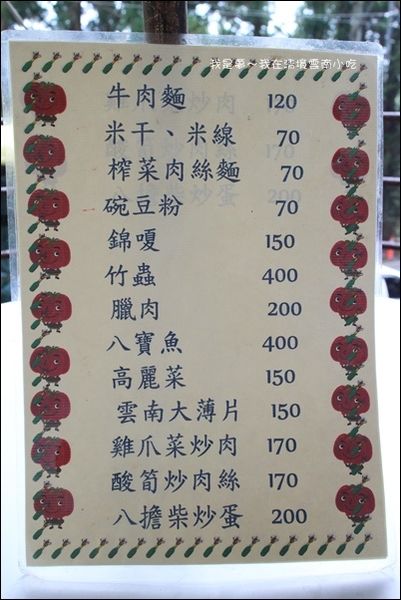 我是菜～我在清境雲南小吃
牛肉麵 120
米干、米線 70
榨菜肉絲麵 70
碗豆粉 70
錦嗄 150
竹蟲 400
臘肉 200
八寶魚 400
高麗菜 150
雲南大薄片 150
雞爪菜炒肉 170
酸筍炒肉絲 170
八擔柴炒蛋 200